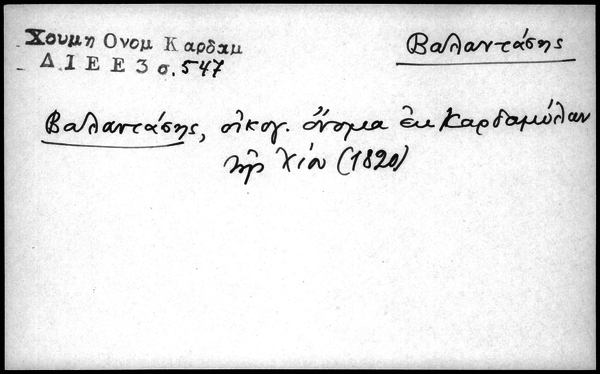 Χουμη Ονομ Καρδαμ
Δ Ι Ε Ε 3 σ. 547
Βαλαντάσης
Βαλαντάσης, οἰκογ. ὄνομα ἐκ Καρδαμύλων
τῆς Χίου (1820)